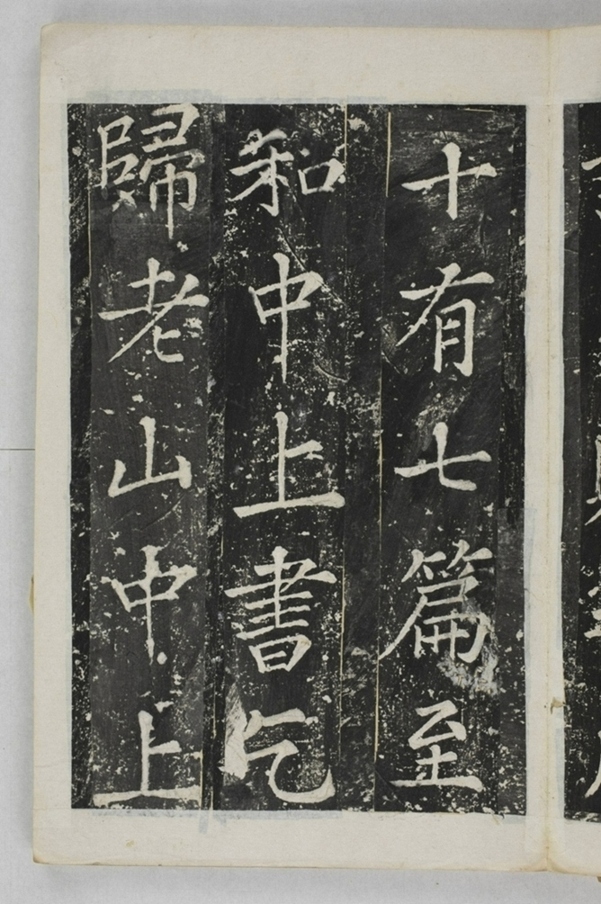 十有七篇至
和中上書乞
歸老山中上